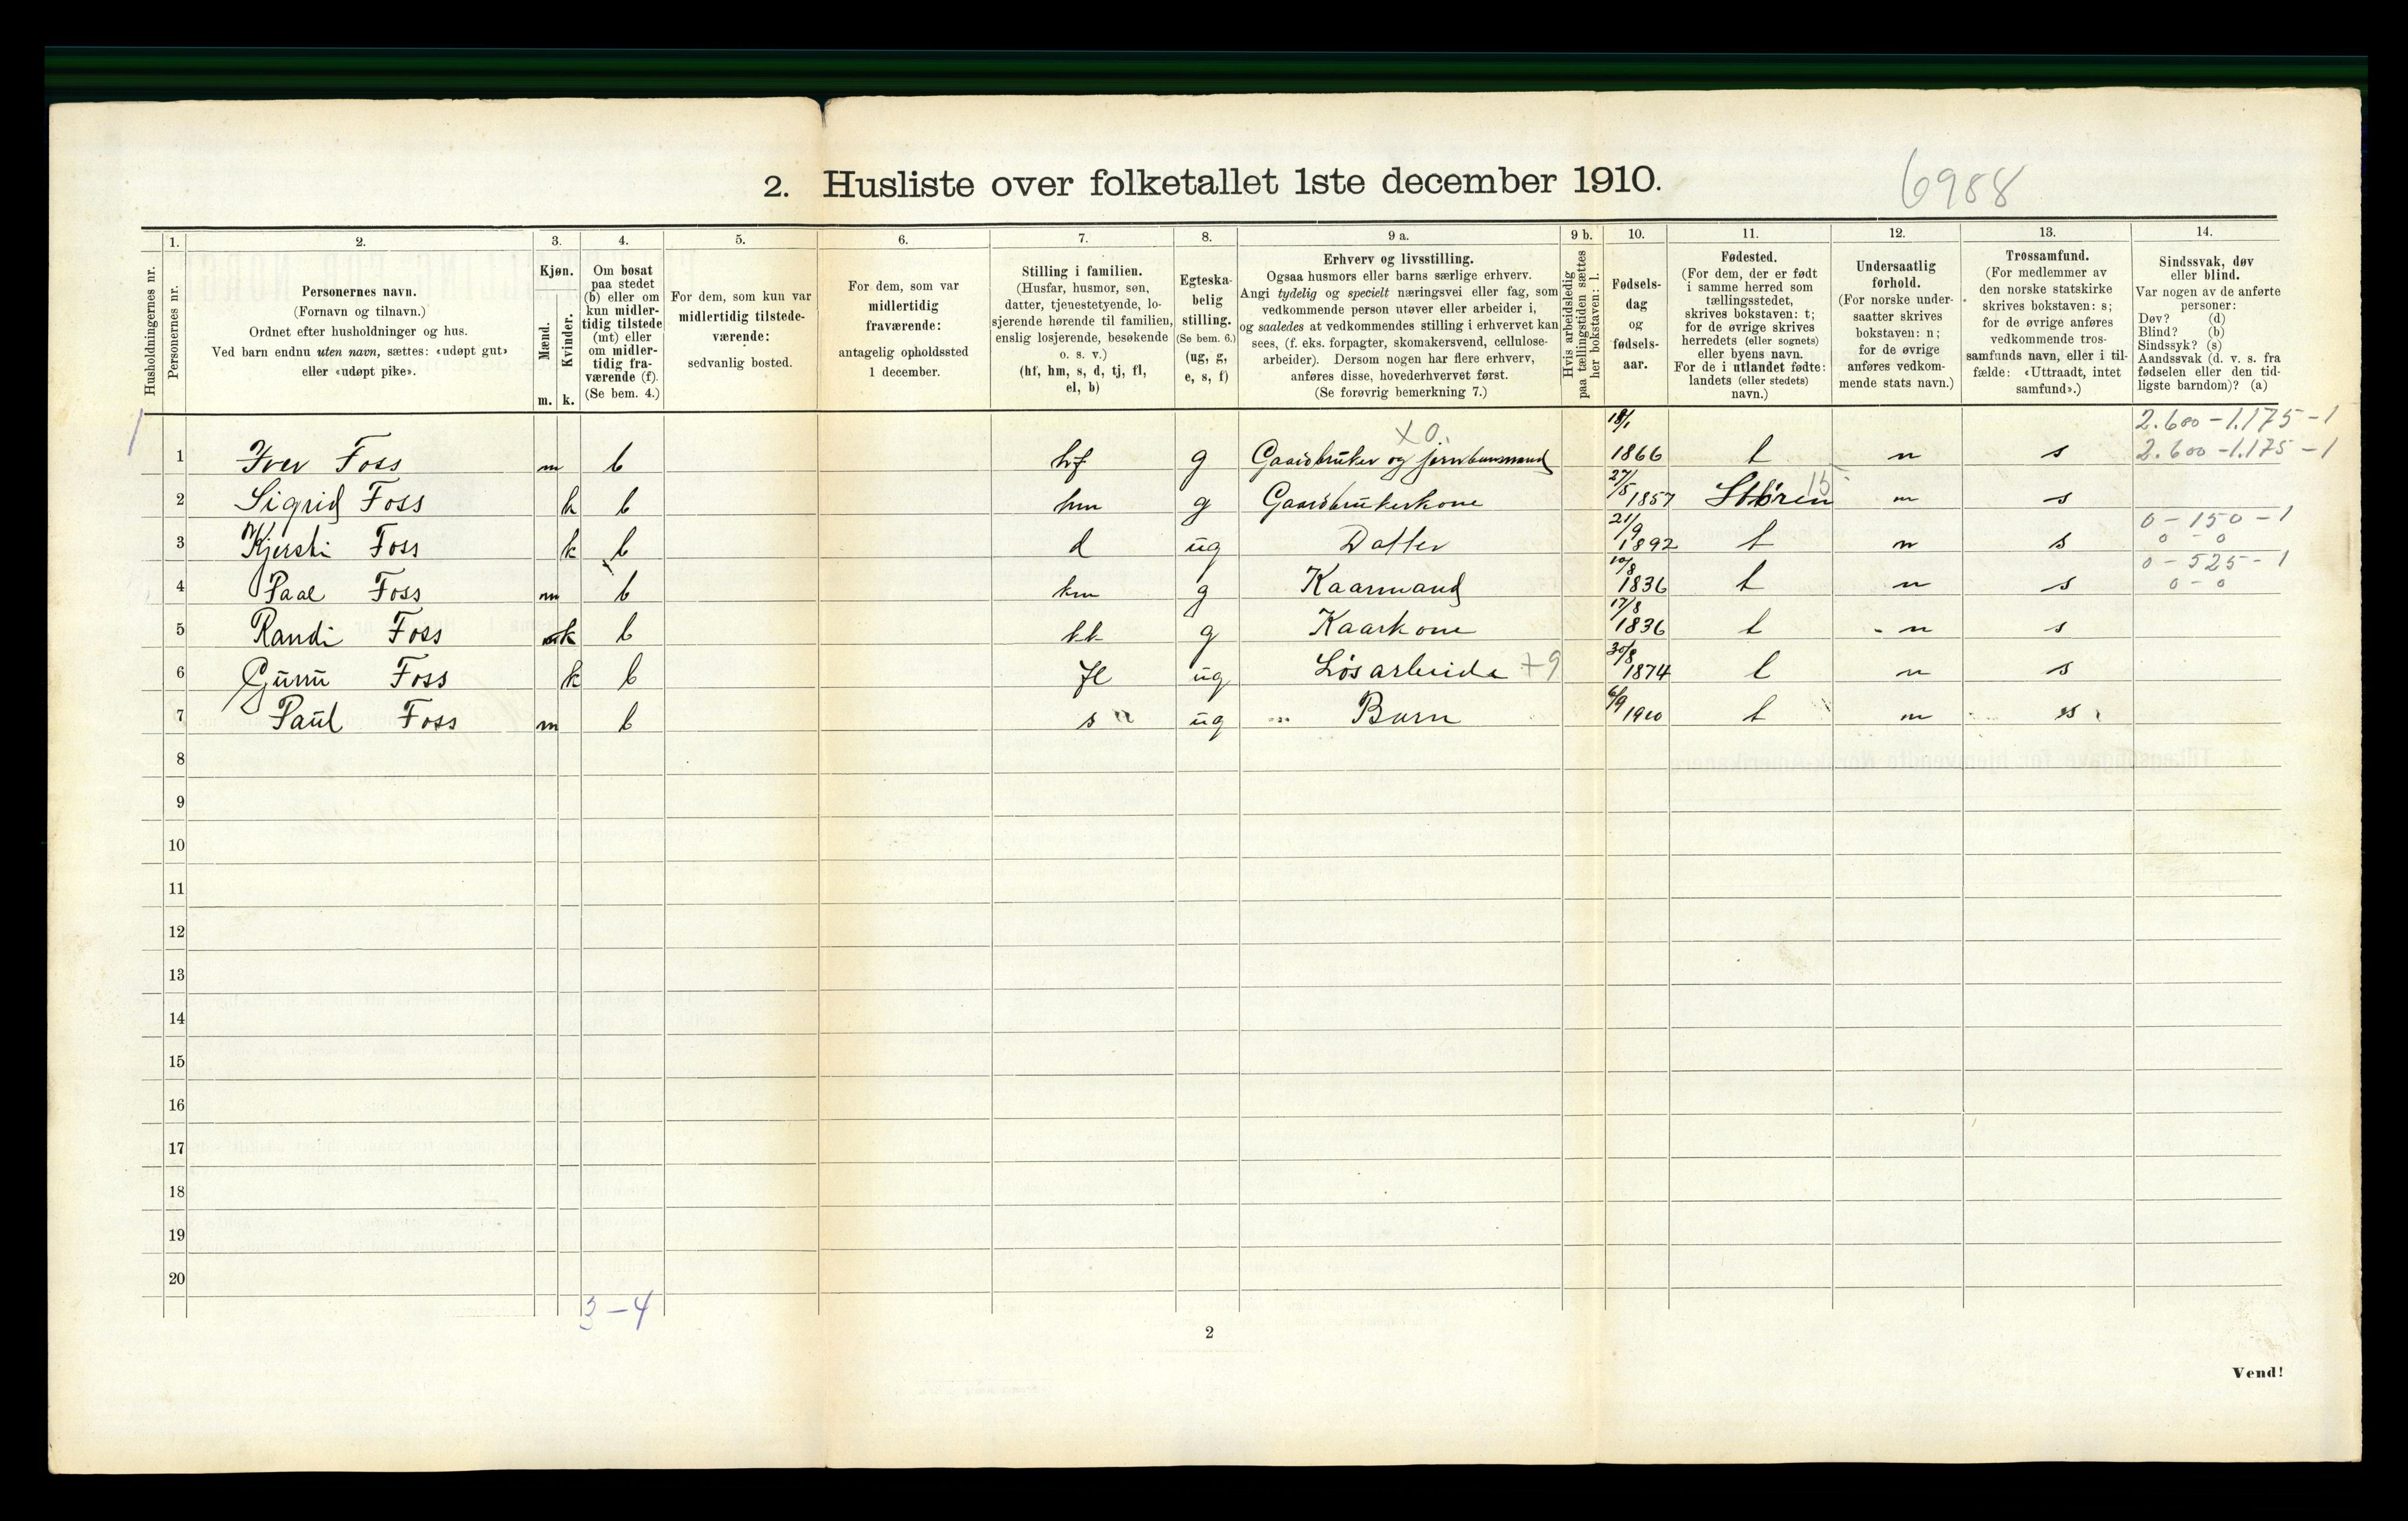 2. Husliste over folketallet 1ste december 1910.
6988
Husholdningernes nr.
1.
Personernes nr.
2.
Personernes navn.
(Fornavn og tilnavn.)
Ordnet efter husholdninger og hus.
Ved barn endnu uten navn, sættes: «udøpt gut»
eller «udøpt pike».
3.
Kjøn.
Mænd.
Kvinder.
m. k.
4.
Om bosat
paa stedet
(b) eller om
kun midler-
tidig tilstede
(mt) eller
om midler-
tidig fra-
værende (f).
(Se bem. 4.)
5.
For dem, som kun var
midlertidig tilstede-
værende:
sedvanlig bosted.
6.
For dem, som var
midlertidig
fraværende:
antagelig opholdssted
1 december.
7.
Stilling i familien.
(Husfar, husmor, søn,
datter, tjenestetyende, lo-
sjerende hørende til familien,
enslig losjerende, besøkende
o. s. v.)
(hf, hm, s, d, tj, fl,
el, b)
8.
Egteska-
belig
stilling.
(Se bem. 6.)
(ug, g,
e, s, f)
9 a.
Erhverv og livsstilling.
Ogsaa husmors eller barns særlige erhverv.
Angi tydelig og specielt næringsvei eller fag, som
vedkommende person utøver eller arbeider i,
og saaledes at vedkommendes stilling i erhvervet kan
sees, (f. eks. forpagter, skomakersvend, cellulose-
arbeider). Dersom nogen har flere erhverv,
anføres disse, hovederhvervet først.
(Se forøvrig bemerkning 7.)
9 b.
Hvis arbeidsledig
paa tællingstiden sættes
her bokstaven: l.
10.
Fødsels-
dag
og
fødsels-
aar.
11.
Fødested.
(For dem, der er født
i samme herred som
tællingsstedet,
skrives bokstaven: t;
for de øvrige skrives
herredets (eller sognets)
eller byens navn.
For de i utlandet fødte:
landets (eller stedets)
navn.)
12.
Undersaatlig
forhold.
(For norske under-
saatter skrives
bokstaven: n;
for de øvrige
anføres vedkom-
mende stats navn.)
13.
Trossamfund.
(For medlemmer av
den norske statskirke
skrives bokstaven: s;
for de øvrige anføres
vedkommende tros-
samfunds navn, eller i til-
fælde: «Uttraadt, intet
samfund».)
14.
Sindssvak, døv
eller blind.
Var nogen av de anførte
personer:
Døv? (d)
Blind? (b)
Sindssyk? (s)
Aandssvak (d. v. s. fra
fødselen eller den tid-
ligste barndom)? (a)
1
XO
18/1
2.600-1.175-1
1 Iver Foss m b hf g Gaardbruker og jernbanemand 1866 t n s 2.600-1.175-1
15
2 Sigrid Foss k b hm g Gaardbrukerkone 27/5 1857 Støren n s
0-150-1
3 Kjersti Foss k b d ug Datter 21/9 1892 t n s 0-0
0-525-1
4 Paal Foss m b km g Kaarmand 10/8 1836 t n s 0-0
5 Randi Foss k b kk g Kaarkone 17/8 1836 t n s
6 Guru Foss k b fl ug Løsarbeide +9 30/8 1874 t n s
7 Paul Foss m b s ug Barn 6/9 1910 t n s
8
9
10
11
12
13
14
15
16
17
18
19
20
3-4
2
Vend!